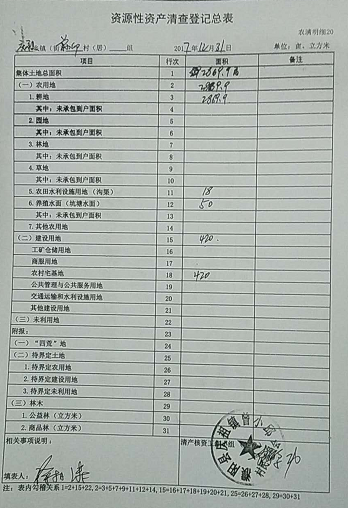 资源性资产清查登记总表
农清明细20
镇 村（居） 组 2017年12月31日 单位：亩、立方米
项目 行次 面积 备注
集体土地总面积 1
（一）农用地 2
1.耕地 3 2819.9
其中：未承包到户面积 4
2.园地 5
其中：未承包到户面积 6
3.林地 7
其中：未承包到户面积 8
4.草地 9
其中：未承包到户面积 10
5.农田水利设施用地（沟渠） 11 18
6.养殖水面（坑塘水面） 12 50
其中：未承包到户面积 13
7.其他农用地 14
（二）建设用地 15 420
工矿仓储用地 16
商服用地 17
农村宅基地 18 420
公共管理与公共服务用地 19
交通运输和水利设施用地 20
其他建设用地 21
（三）未利用地 22
附报： 23
（一）“四荒”地 24
（二）待界定土地 25
1.待界定农用地 26
2.待界定建设用地 27
3.待界定未利用地 28
（三）林木 29
1.公益林（立方米） 30
2.商品林（立方米） 31
相关事项说明： 清产核资工作组
填表人：
注：表内勾稽关系 1=2+15+22, 2=3+5+7+9+11+12+14, 15=16+17+18+19+20+21, 25=26+27+28, 29=30+31